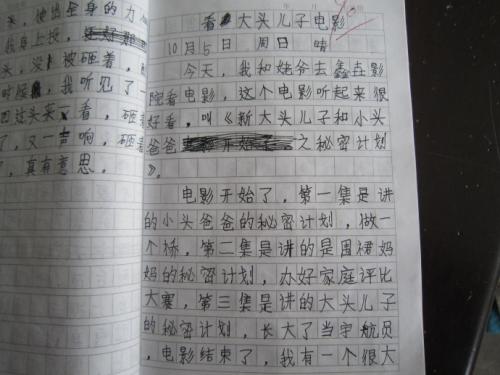 ,他出全身的力
头,没被砸着,
时候,我听见了一
回过头来一看,砸着
了,又一声响,砸着
,真有意思。
看大头儿子电影
10月15日 周日 晴
今天,我和姥爷去鑫垚影
院看电影,这个电影听起来很
好看,叫《新大头儿子和小头
爸爸之秘密计划
》。
电影开始了,第一集是讲
的小头爸爸的秘密计划,做一
个桥,第二集是讲的是围裙妈
妈的秘密计划,办好家庭评比
大赛,第三集是讲的大头儿子
的秘密计划,长大了当宇航员
,电影结束了,我有一个很大